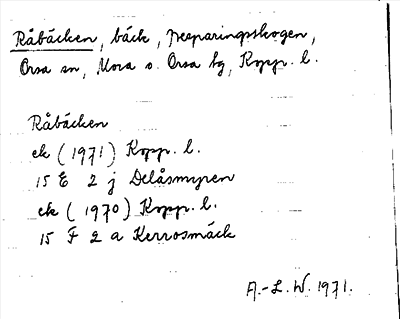 Råbäcken, bäck, Besparingsskogen,
Orsa sn, Mora o. Orsa tg, Kopp. l.
Råbäcken
ek (1971) Kopp. l.
15 E 2 j Delåsmyren
ek (1970) Kopp. l.
15 F 2 a Kerrosmäck
A.-L. W. 1971.